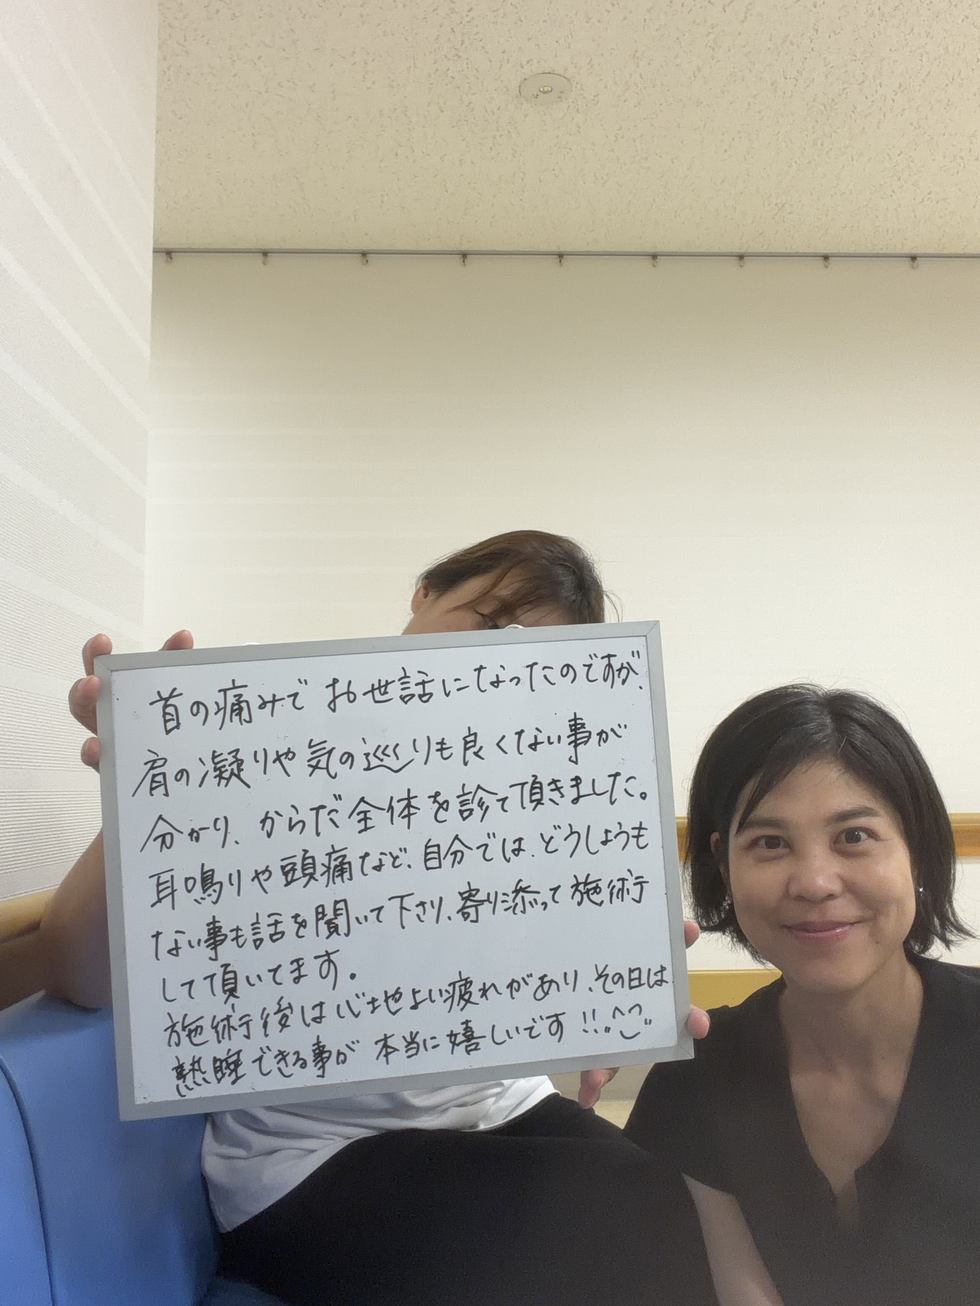 首の痛みで お世話になったのですが、
肩の凝りや気の巡りも良くない事が
分かり、からだ全体を診て頂きました。
耳鳴りや頭痛など、自分では、どうしようも
ない事も話を聞いて下さり、寄り添って施術
して頂いてます。
施術後は心地よい疲れがあり、その日は
熟睡できる事が 本当に嬉しいです!!